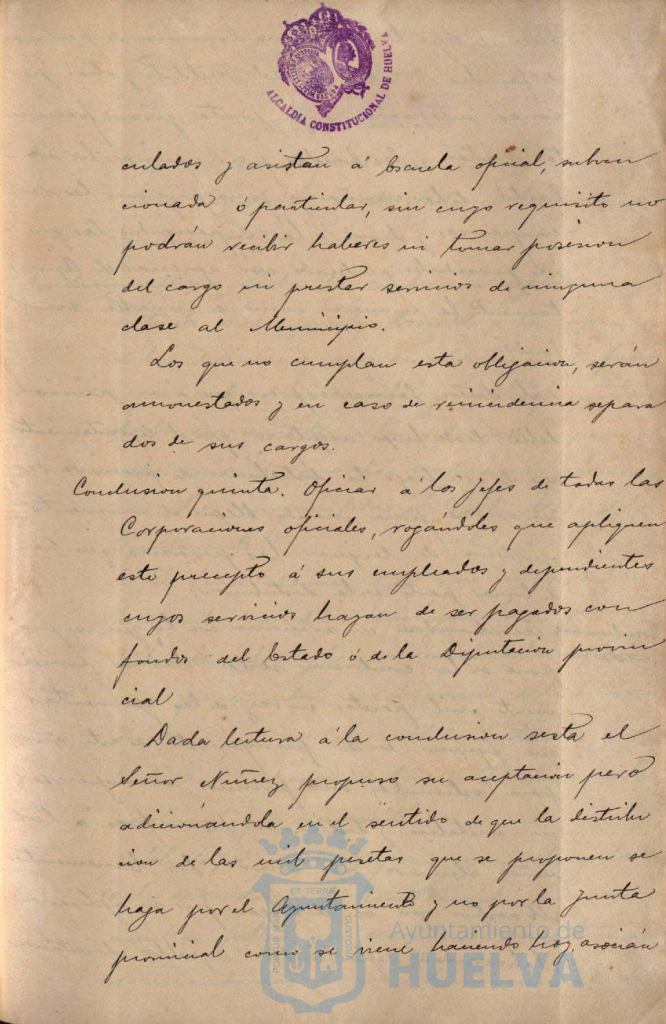 ALCALDIA CONSTITUCIONAL DE HUELVA
culados y asistan á Escuela oficial, subven
cionada ó particular, sin cuyo requisito no
podrán recibir haberes ni tomar posesion
del cargo ni prestar servicios de ninguna
clase al Municipio.
Los que no cumplan esta obligacion, serán
amonestados y en caso de reincidencia separa
dos de sus cargos.
Conclusion quinta. Oficiar á los Jefes de todas las
Corporaciones oficiales, rogándoles que apliquen
este precepto á sus empleados y dependientes
cuyos servicios hayan de ser pagados con
fondos del Estado ó de la Diputacion provin
cial
Dada lectura á la conclusion sesta el
Señor Nuñez propuso su aceptacion pero
adicionándola en el sentido de que la distribu
cion de las mil pesetas que se proponen se
haga por el Ayuntamiento y no por la Junta
provincial como se viene haciendo hoy, asocián
Ayuntamiento de
HUELVA